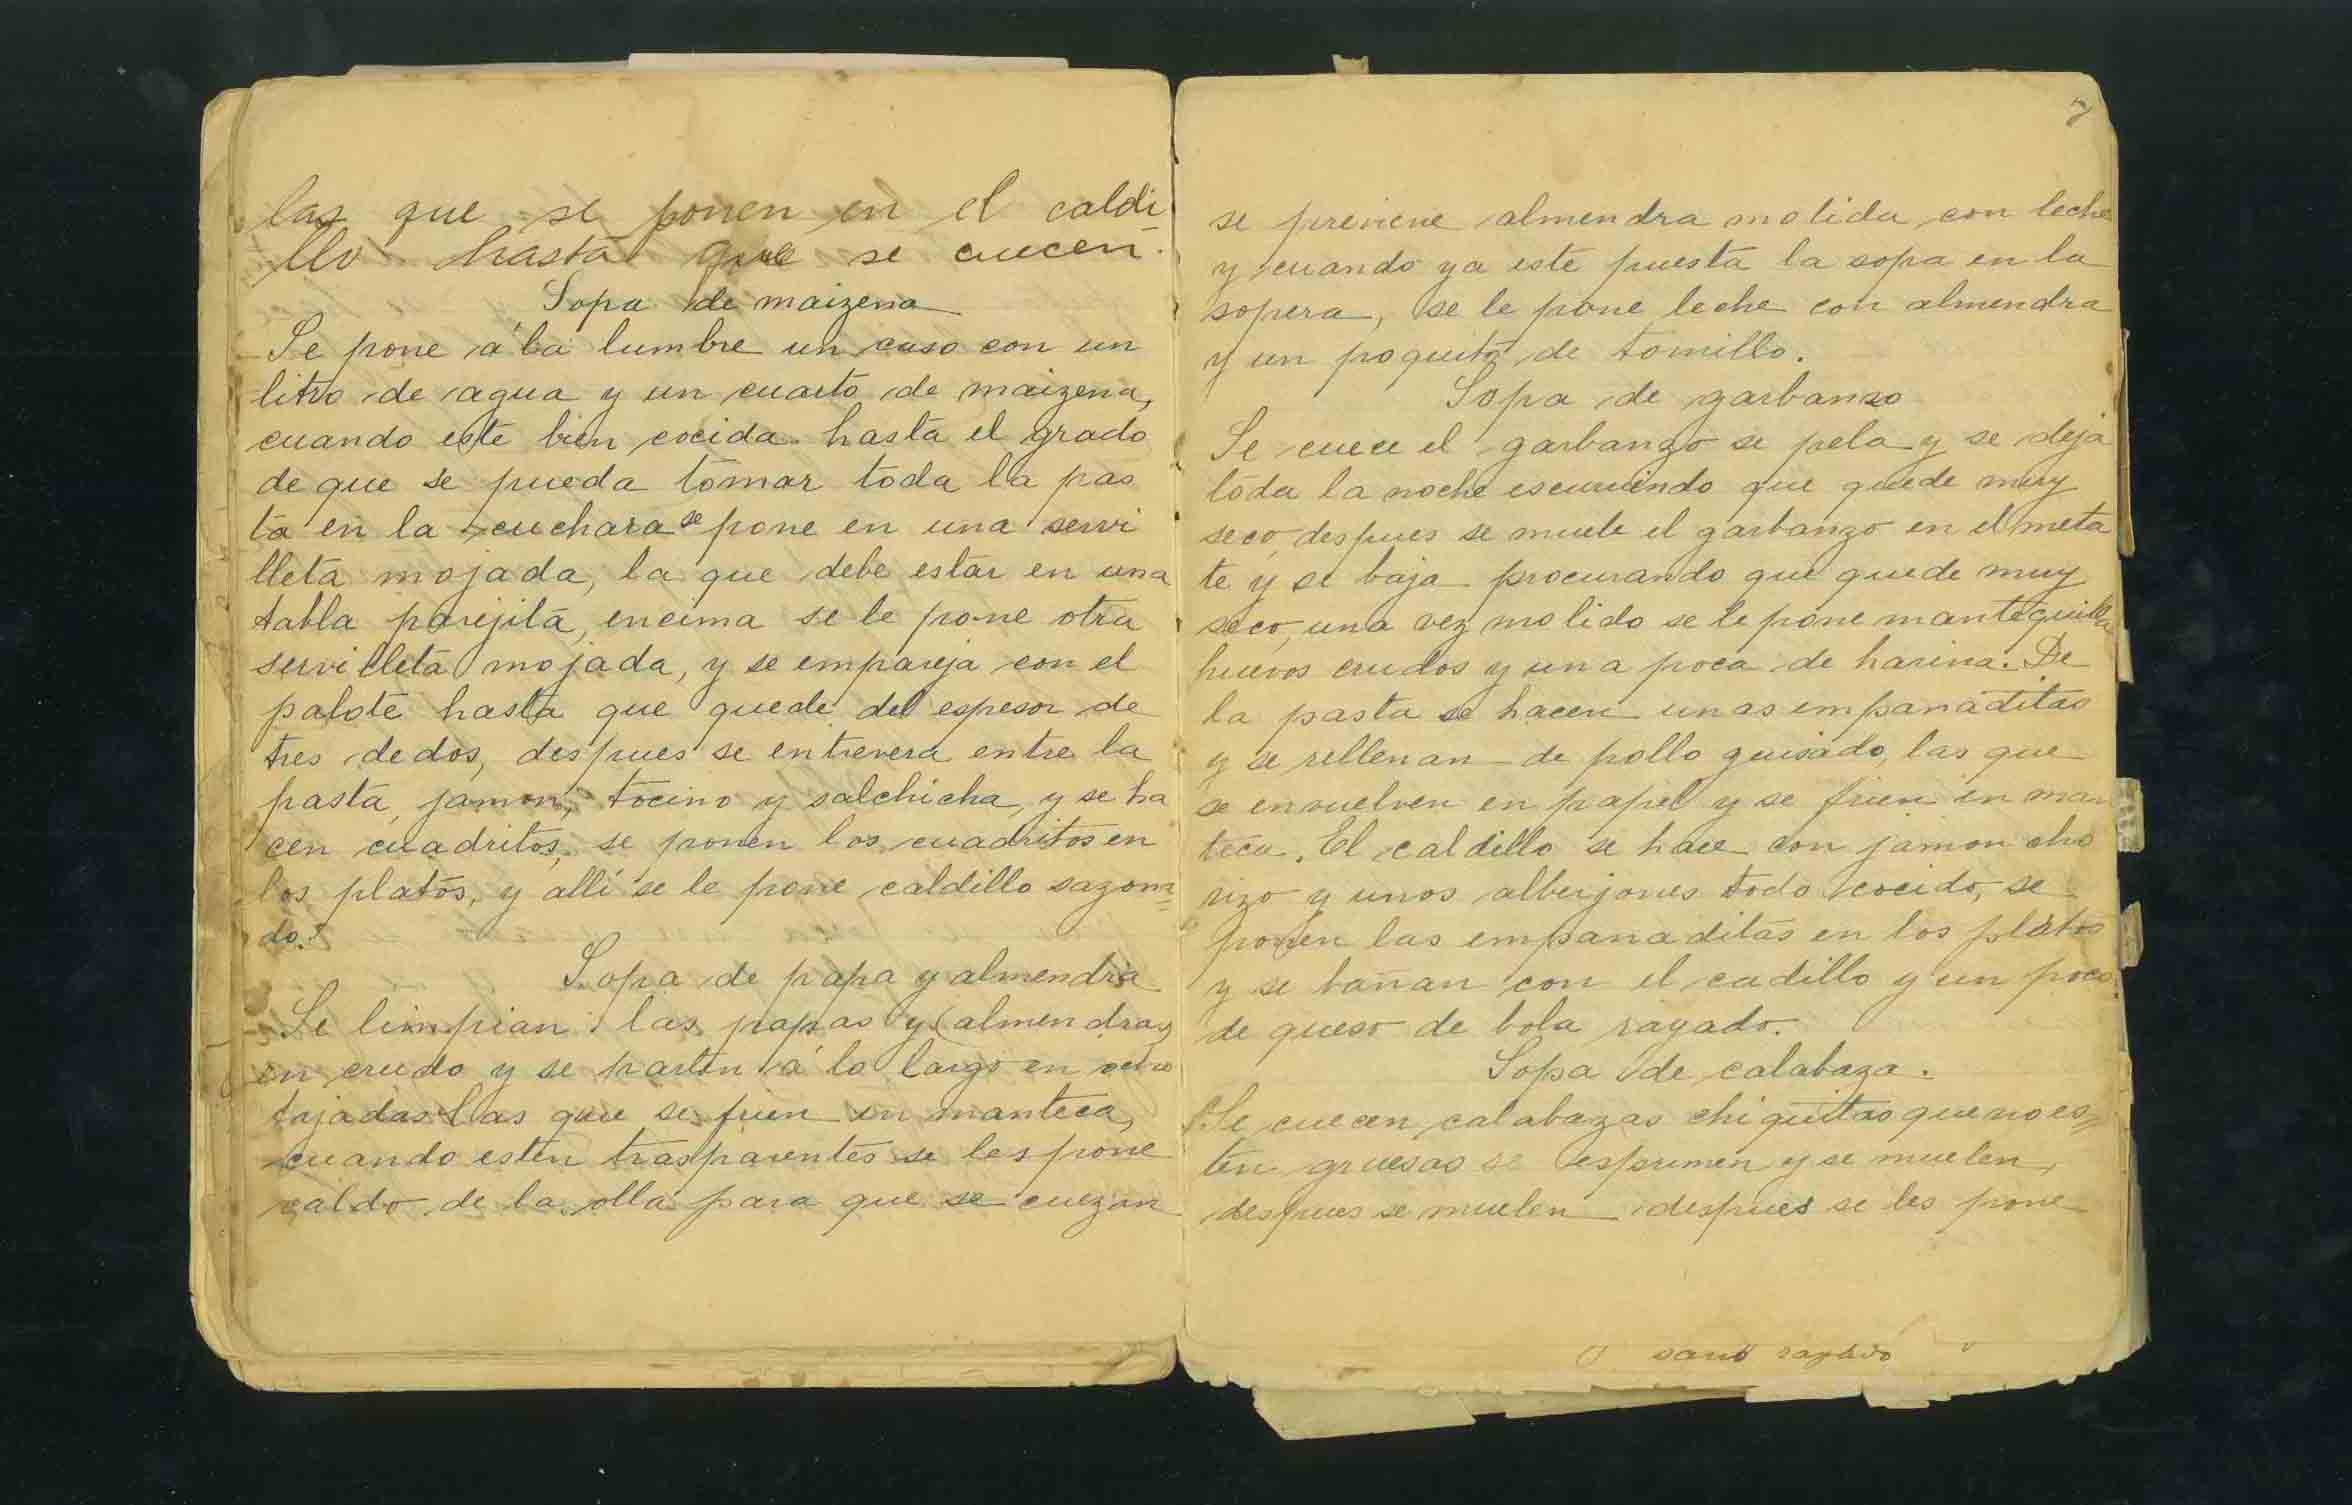 las que se ponen en el caldi
llo hasta que se cuecen.
Sopa de maizena
Se pone á la lumbre un caso con un
litro de agua y un cuarto de maizena,
cuando este bien cocida hasta el grado
de que se pueda tomar toda la pas
ta en la cuchara se pone en una servi
lleta mojada, la que debe estar en una
tabla parejita, encima se le pone otra
servilleta mojada, y se empareja con el
palote hasta que quede del espesor de
tres dedos, despues se entrevera entre la
pasta, jamon, tocino y salchicha, y se ha
cen cuadritos, se ponen los cuadritos en
los platos, y allí se le pone caldillo sazona=
do.
Sopa de papa y almendra
Se limpian las papas y almendras
en crudo y se parten á lo largo en
tajadas las que se frien en manteca,
cuando esten trasparentes se les pone
caldo de la olla para que se cuezan
7
se previene almendra molida con leche
y cuando ya este puesta la sopa en la
sopera, se le pone leche con almendra
y un poquito de tomillo.
Sopa de garbanzo
Se cuece el garbanzo se pela y se deja
toda la noche escurriendo que quede muy
seco, despues se muele el garbanzo en el meta
te y se baja procurando que quede muy
seco, una vez molido se le pone mantequilla
huevos crudos y una poca de harina. De
la pasta se hacen unas empanaditas
y se rellenan de pollo guisado, las que
se envuelven en papel y se frien en man
teca. El caldillo se hace con jamon cho
rizo y unos alberjones todo cocido, se
ponen las empanaditas en los platos
y se bañan con el cadillo y un poco
de queso de bola rayado.
Sopa de calabaza.
Se cuecen calabazas chiquitas que no es=
ten gruesas se esprimen y se muelen,
despues se muelen despues se les pone
rayado